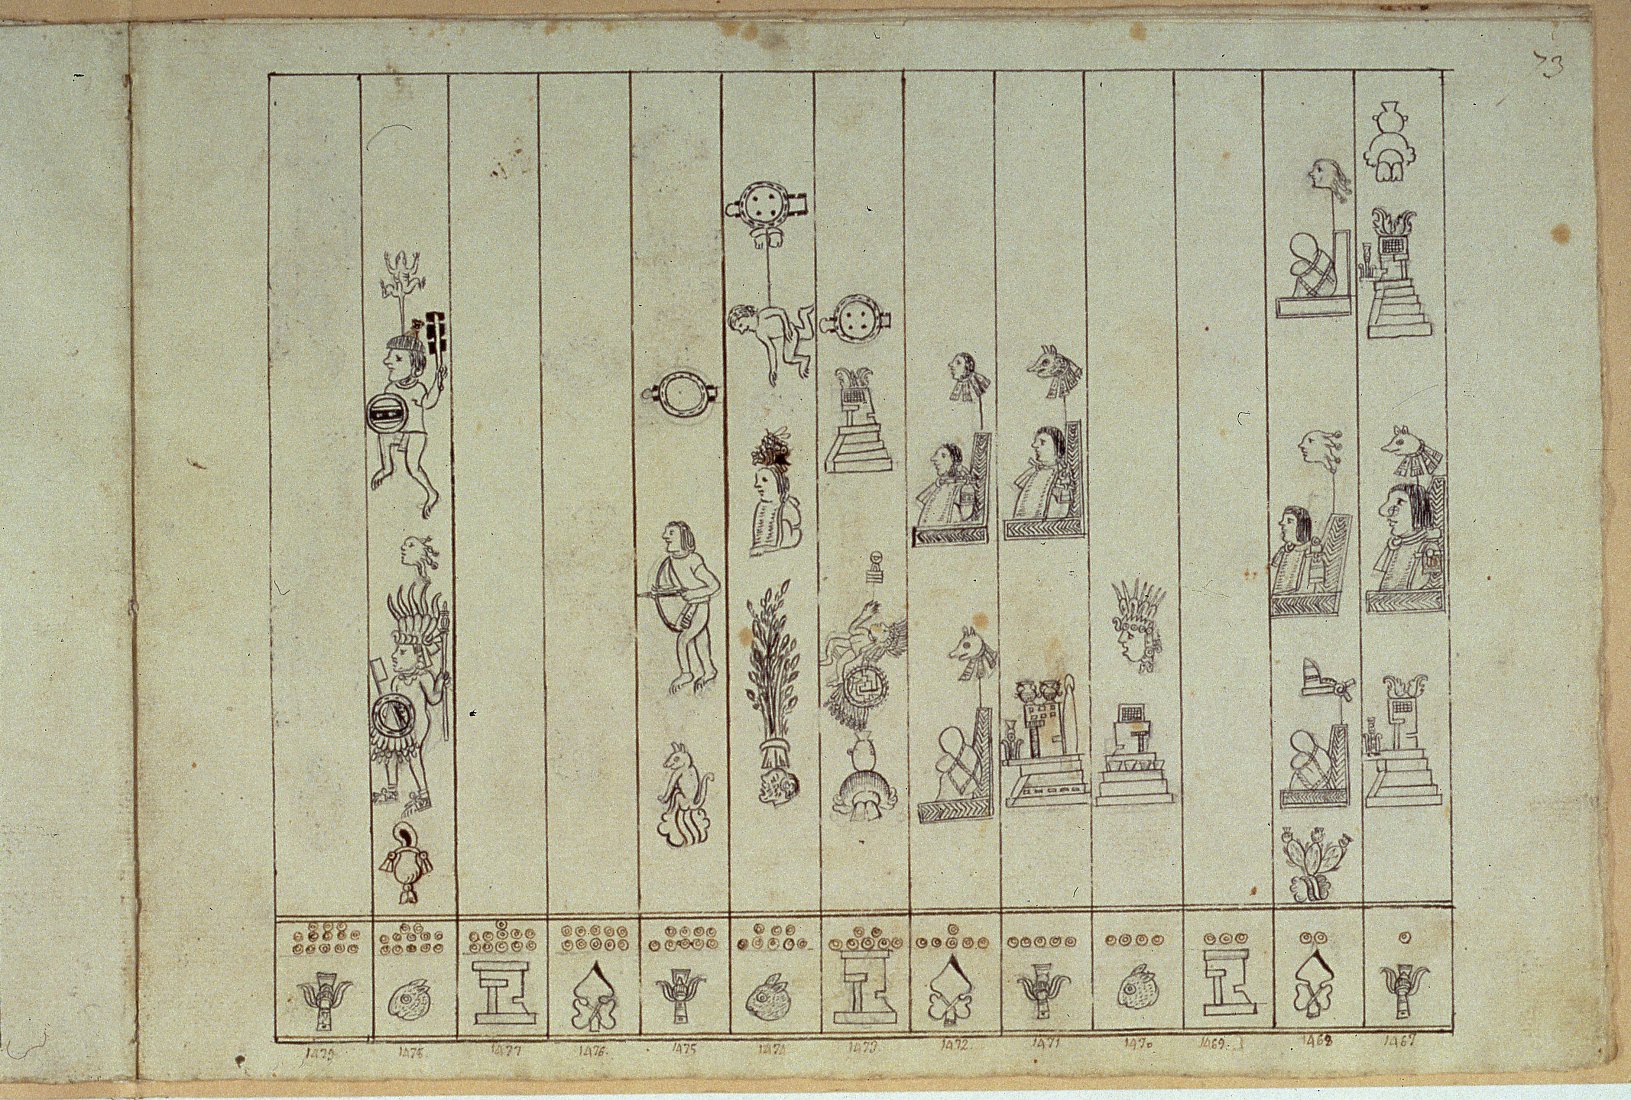 73
1479 1478 1477 1476 1475 1474 1473 1472 1471 1470 1469 1468 1467